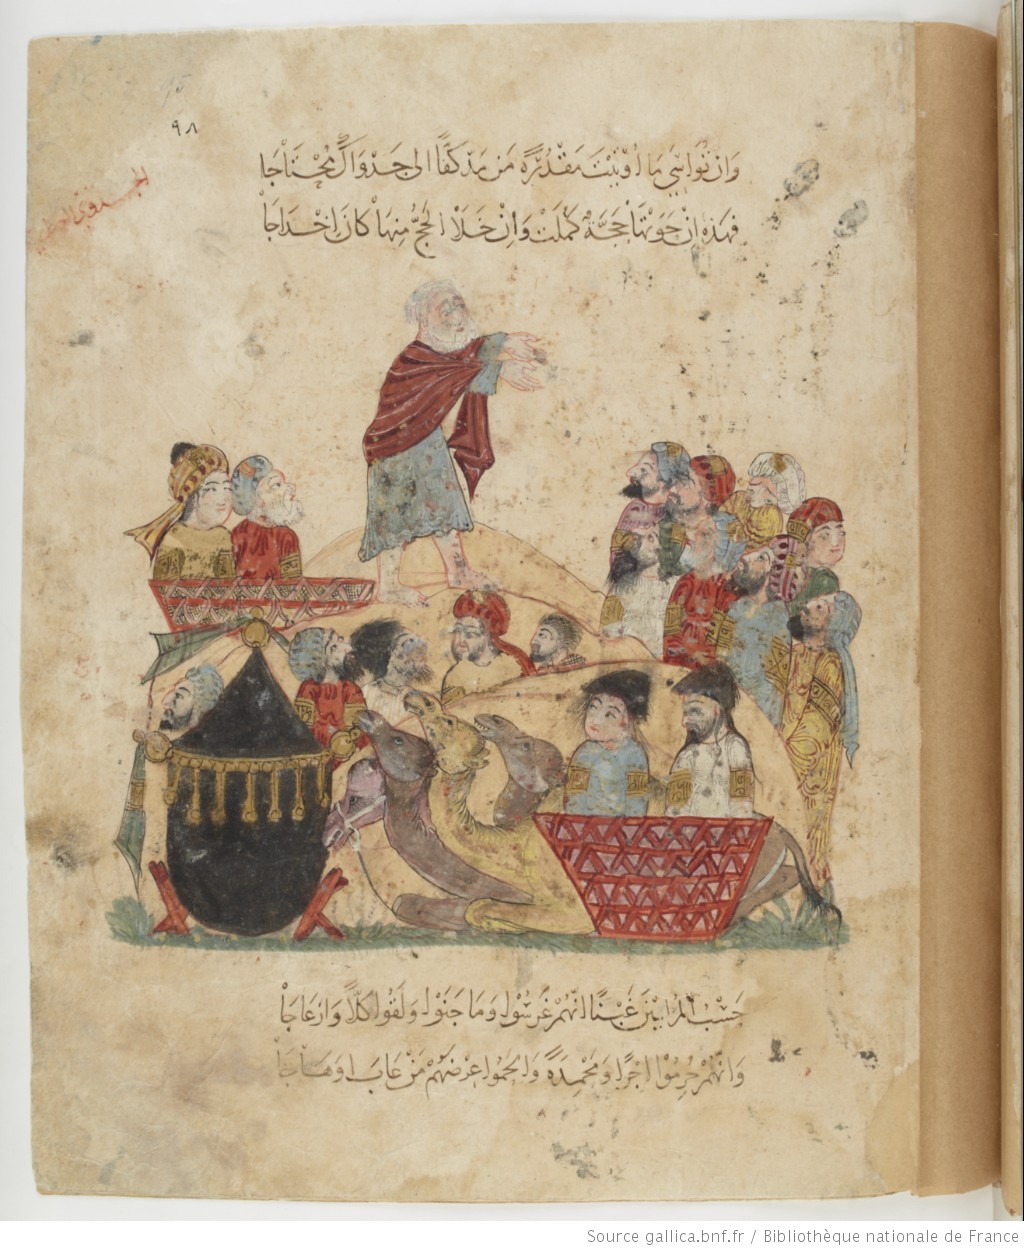 95
٩٨
وَاِنْ تُوَاسِيَ مَا اُوْتِيْتَ مَقْدُرَةً مَنْ مَدَّ كَفًّا اِلى جَدْوَاكَ مُحْتَاجَا
فَهَذِهِ اِنْ حَوَتْهَا حِجَّةٌ كَمُلَتْ وَاِنْ خَلَا الْحَجُّ مِنْهَا كَانَ اِخْدَاجَا
حَسْبُ الْمُرَائِيْنَ غَبْنًا اَنَّهُمْ غَرَسُوْا وَمَا جَنَوْا وَلَقُوْا كَدًّا وَاِزْعَاجَا
وَاَنَّهُمْ حُرِمُوْا اَجْرًا وَمَحْمِدَةً وَاَلْحَمُوْا عِرْضَهُمْ مَنْ عَابَ اَوْ هَاجَا
Source gallica.bnf.fr / Bibliothèque nationale de France